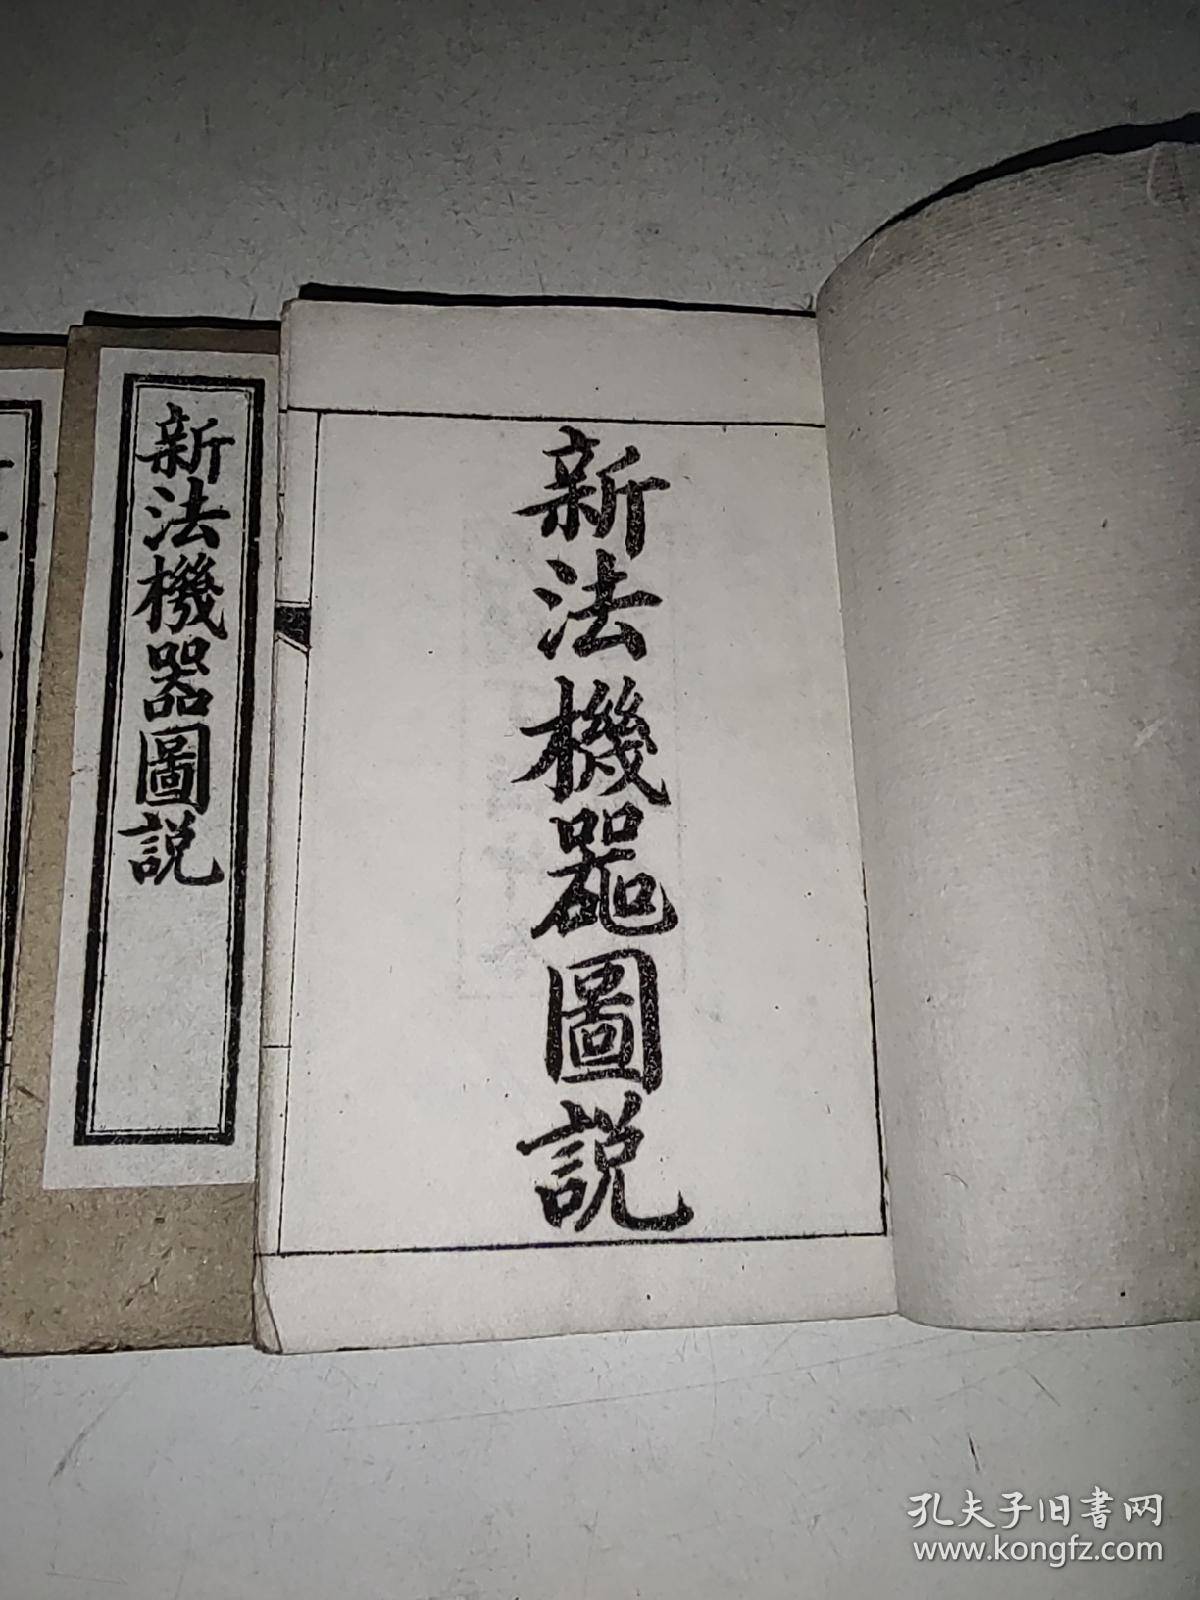 新法機器圖説
新法機器圖説
孔夫子旧書网
www.kongfz.com